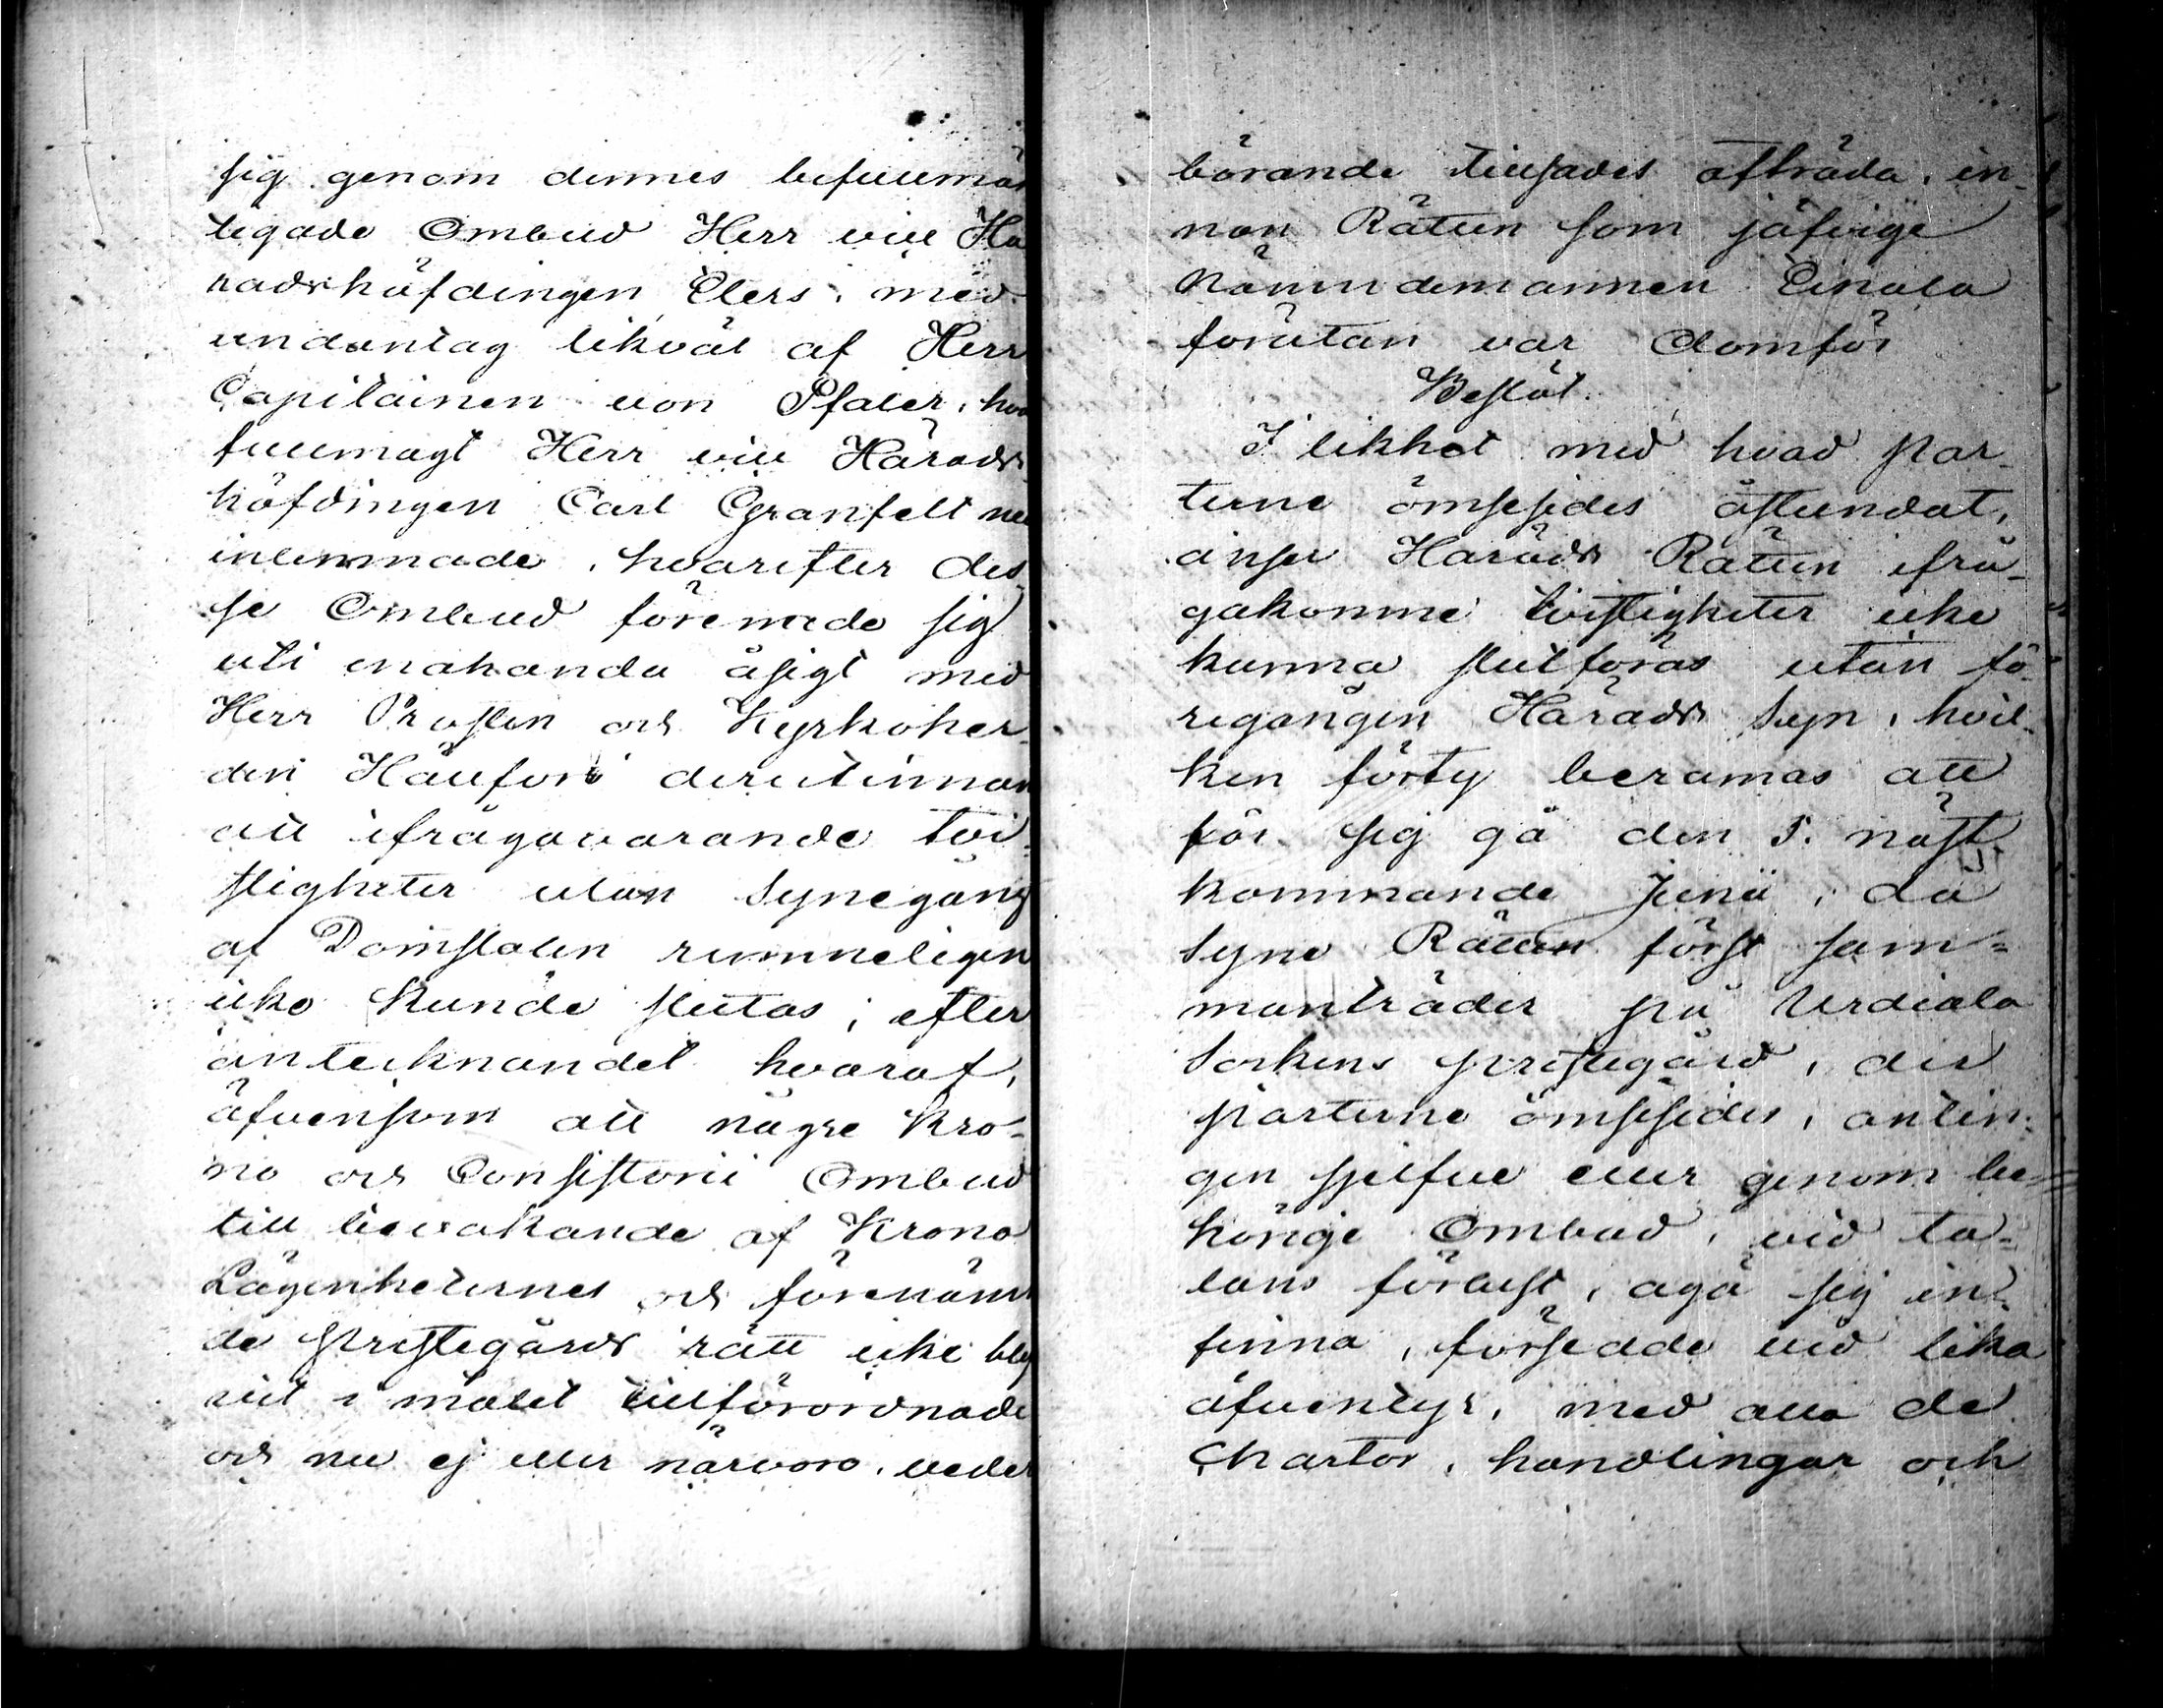 sig genom dennes befullmäk
tigade Ombud Herr vice Hä
radshöfdingen Elers, med
undantag likväl af Herr
Capitainen von Pfaler, hvars
fullmagt Herr vice Härads
höfdingen Carl Granfelt nu
inlemnade, hvarefter des
se Ombud förenade sig
uti enahanda åsigt med
Herr Prosten och Kyrkoher-
den Häufors derutinnan
att ifrågavarande tvi-
stigheter utan Synegång
af Domstolen rimmeligen
icke kunde slutas; efter
antecknandet hvaraf,
äfvensom att någre Kro-
no och Consistorii Ombud
till bevakande af Krono
Lägenheternes och förenämn
de prestegårds rätt icke blif
vit i målet tillförordnade
och nu ej eller närvoro, veder
börande tillsades afträda, in-
nan Rätten som jäfvige
Nämndemannen Einala
förutan var domför
Beslöt.
I likhet med hvad par-
terne ömsesides åstundat,
anser Härads Rätten ifrå-
gakomne tvistigheter icke
kunna slutföras utan fö-
regången Härads Syn, hvil-
ken förty beramas att
för sig gå den 5. näst
kommande Junii, då
Syne Rätten först sam-
manträder på Urdiala
Sockens prestegård, der
parterne ömsesides, antin-
gen sjelfve eller genom be-
hörige Ombud, vid ta-
lans förlust, äga sig in-
finna, försedde vid lika
äfventyr, med alla de
Chartor, handlingar och